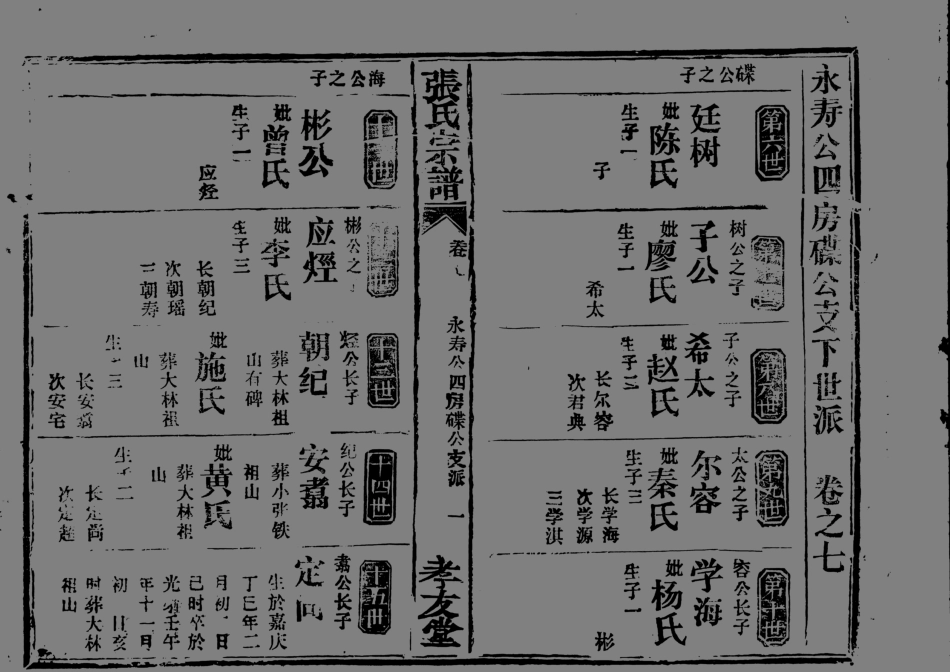 永寿公四房碟公支下世派 卷之七
碟公之子
第六世
廷树
妣陈氏
生子一
子
第七世
树公之子
子公
妣廖氏
生子一
希太
第八世
子公之子
希太
妣赵氏
生子二
长尔容
次君典
第九世
太公之子
尔容
妣秦氏
生子三
长学海
次学源
三学淇
第十世
容公长子
学海
妣杨氏
生子一
彬
張氏宗譜
卷
永寿公四房碟公支派
一
孝友堂
海公之子
十一世
彬公
妣曾氏
生子一
应烴
彬公之
应烴
妣李氏
生子三
长朝纪
次朝瑶
三朝寿
十三世
烴公长子
朝纪
葬大林祖
山有碑
妣施氏
葬大林祖
山
生子三
长安翥
次安宅
十四世
纪公长子
安翥
葬小张铁
祖山
妣黄氏
葬大林祖
山
生子二
长定尚
次定
十五世
翥公长子
定尚
生於嘉庆
丁巳年二
月初一日
巳时卒於
光绪壬午
年十一月
初 日亥
时葬大林
祖山